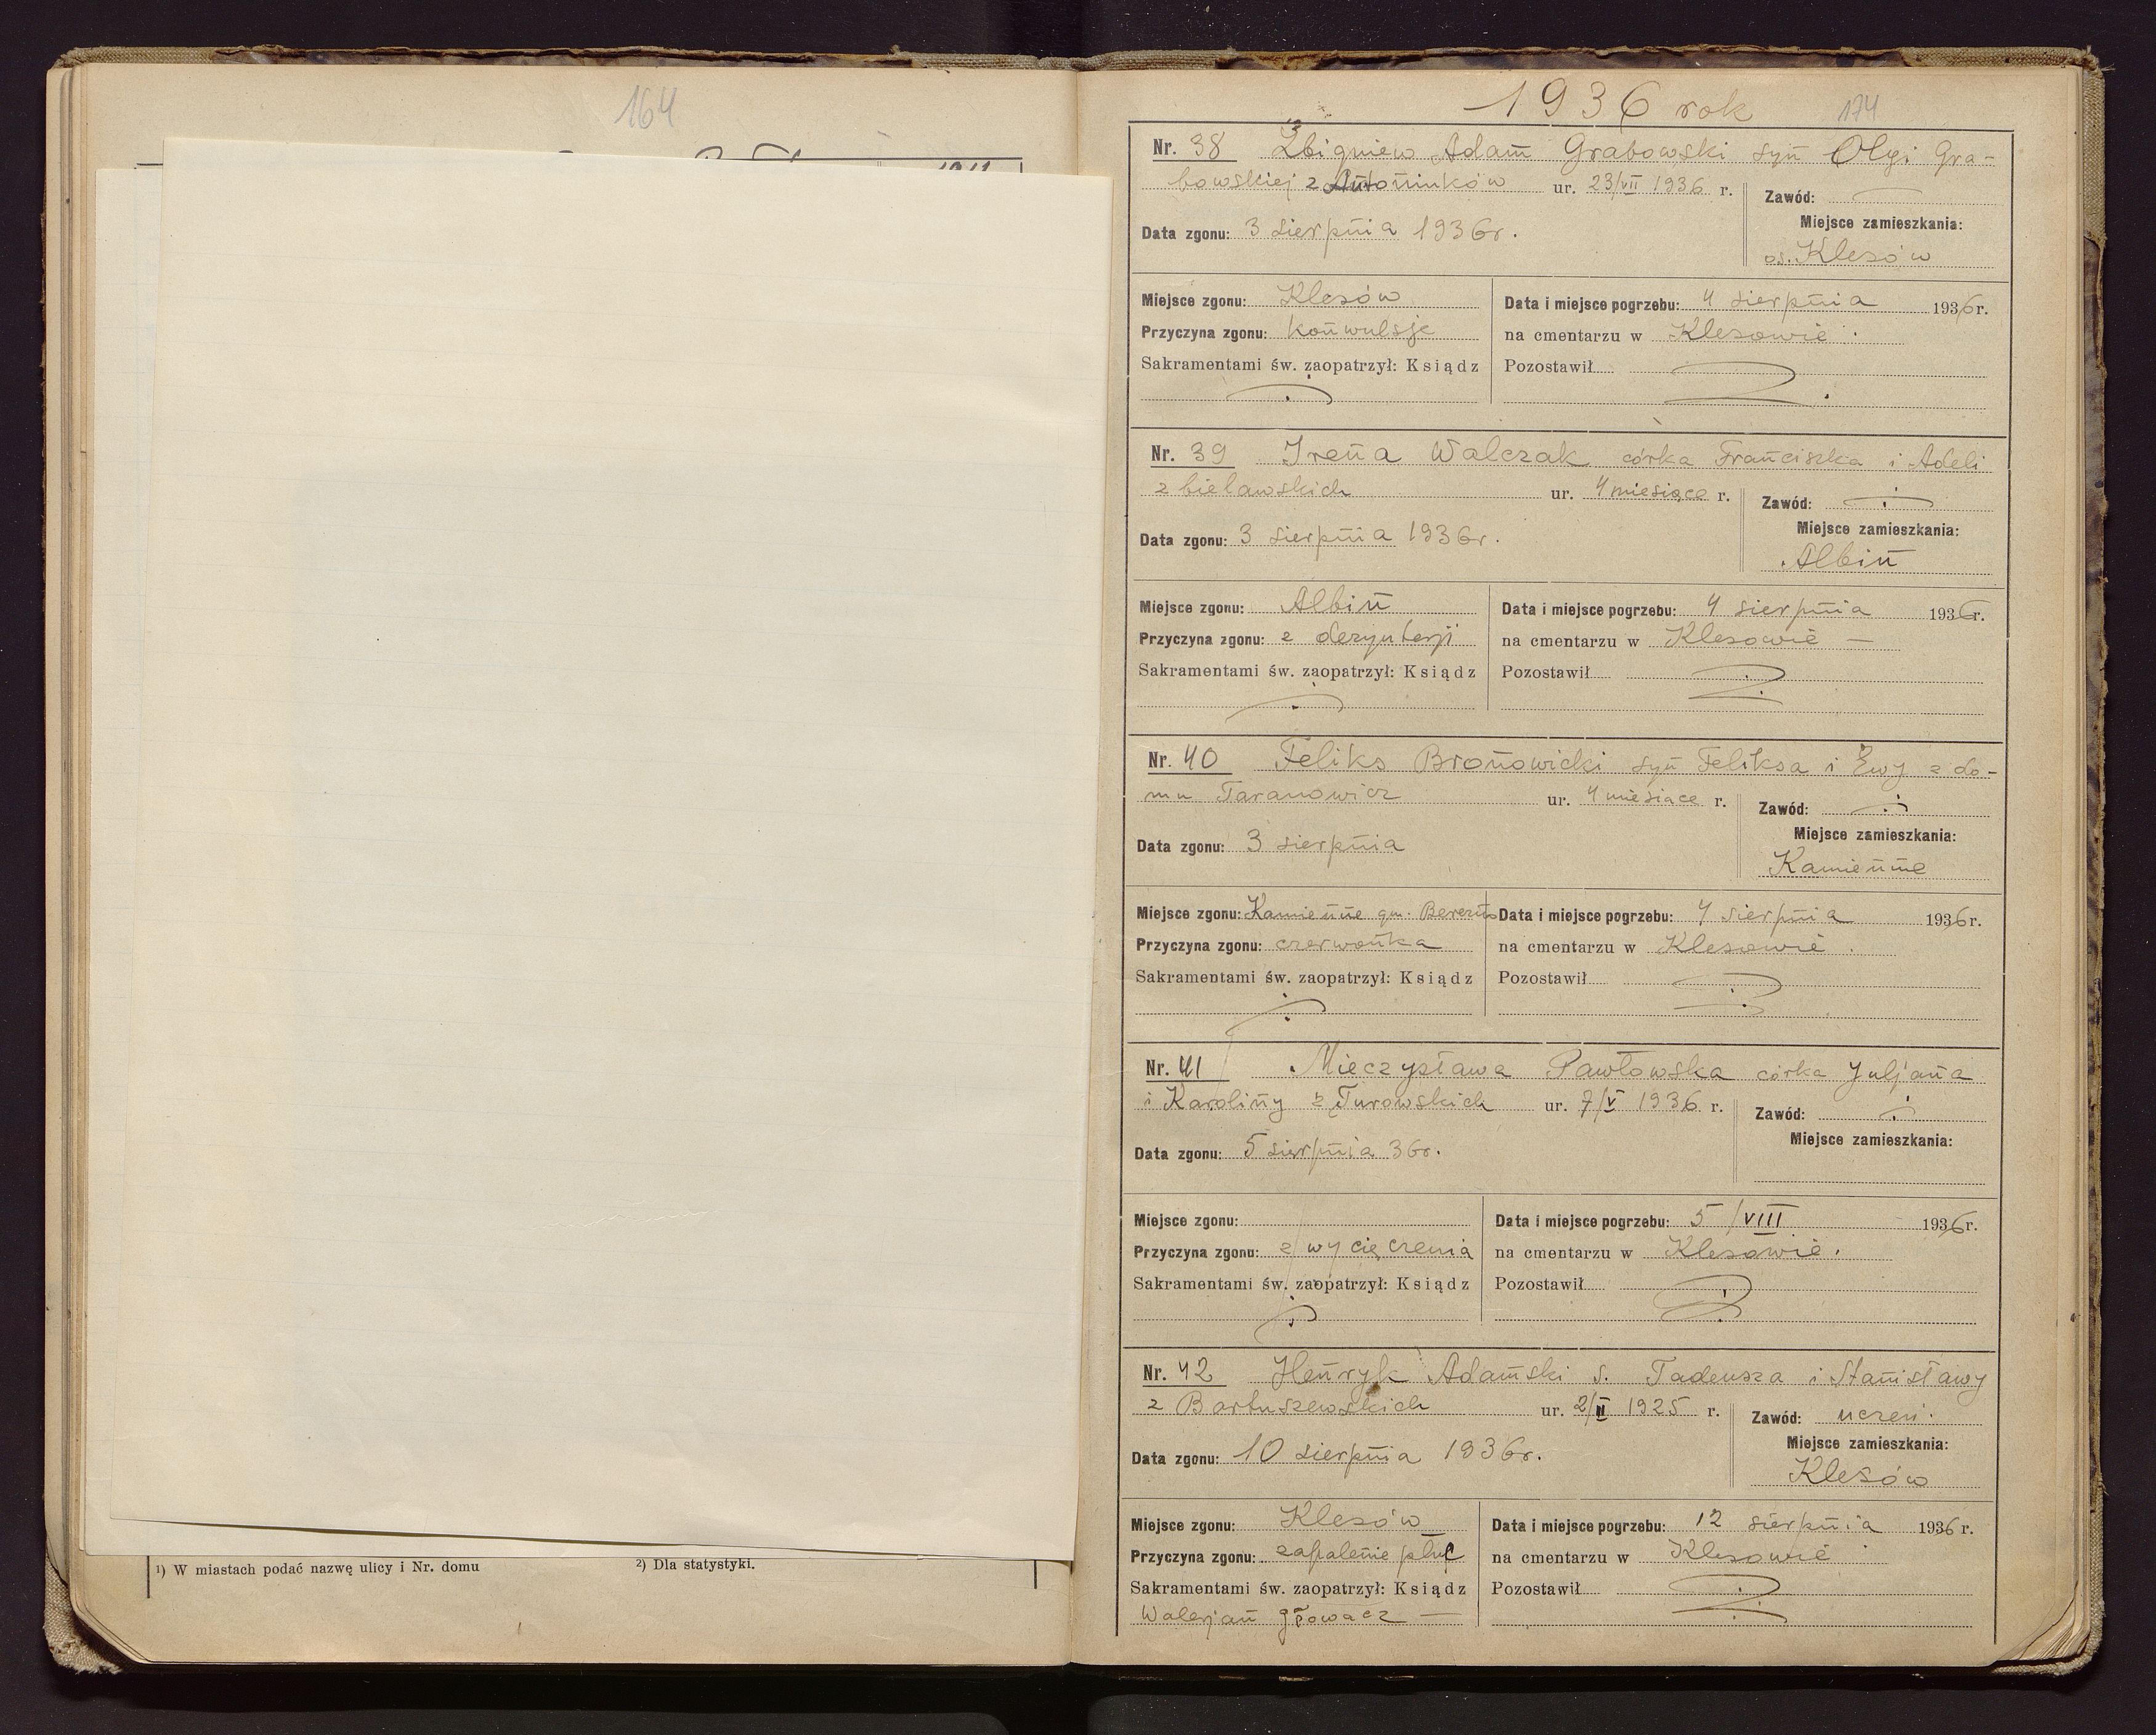 164
¹) W miastach podać nazwę ulicy i Nr. domu
²) Dla statystyki.
1936 rok
174
Nr. 38 Zbigniew Adam Grabowski syn Olgi Gra-
bowskiej z Antoniuków ur. 23/VII 1936 r.
Zawód:
Data zgonu: 3 sierpnia 1936r.
Miejsce zamieszkania:
os. Klesów
Miejsce zgonu: Klesów
Przyczyna zgonu: konwulsje
Sakramentami św. zaopatrzył: Ksiądz
Data i miejsce pogrzebu: 4 sierpnia 1936r.
na cmentarzu w Klesowie.
Pozostawił
Nr. 39 Irena Walczak córka Franciszka i Adeli
z bielawskich ur. 4 miesiące r.
Zawód:
Data zgonu: 3 sierpnia 1936r.
Miejsce zamieszkania:
Albin
Miejsce zgonu: Albin
Przyczyna zgonu: z dezynterji
Sakramentami św. zaopatrzył: Ksiądz
Data i miejsce pogrzebu: 4 sierpnia 1936r.
na cmentarzu w Klesowie —
Pozostawił
Nr. 40 Feliks Bronowicki syn Feliksa i Ewy z do-
mu Taranowicz ur. 4 miesiące r.
Zawód:
Data zgonu: 3 sierpnia
Miejsce zamieszkania:
Kamienne
Miejsce zgonu: Kamienne gm.
Przyczyna zgonu: czerwonka
Sakramentami św. zaopatrzył: Ksiądz
Data i miejsce pogrzebu: 4 sierpnia 1936r.
na cmentarzu w Klesowie.
Pozostawił
Nr. 41 Mieczysława Pawłowska córka Juljana
i Karoliny z Turowskich ur. 7/V 1936 r.
Zawód:
Data zgonu: 5 sierpnia 36r.
Miejsce zamieszkania:
Miejsce zgonu:
Przyczyna zgonu: z wycięczenia
Sakramentami św. zaopatrzył: Ksiądz
Data i miejsce pogrzebu: 5/VIII 1936r.
na cmentarzu w Klesowie.
Pozostawił
Nr. 42 Henryk Adamski s. Tadeusza i Stanisławy
z Bartuszewskich ur. 2/II 1925 r.
Zawód: uczeń.
Data zgonu: 10 sierpnia 1936r.
Miejsce zamieszkania:
Klesów
Miejsce zgonu: Klesów
Przyczyna zgonu: zapalenie płuc
Sakramentami św. zaopatrzył: Ksiądz
Walerjan głowacz —
Data i miejsce pogrzebu: 12 sierpnia 1936 r.
na cmentarzu w Klesowie
Pozostawił